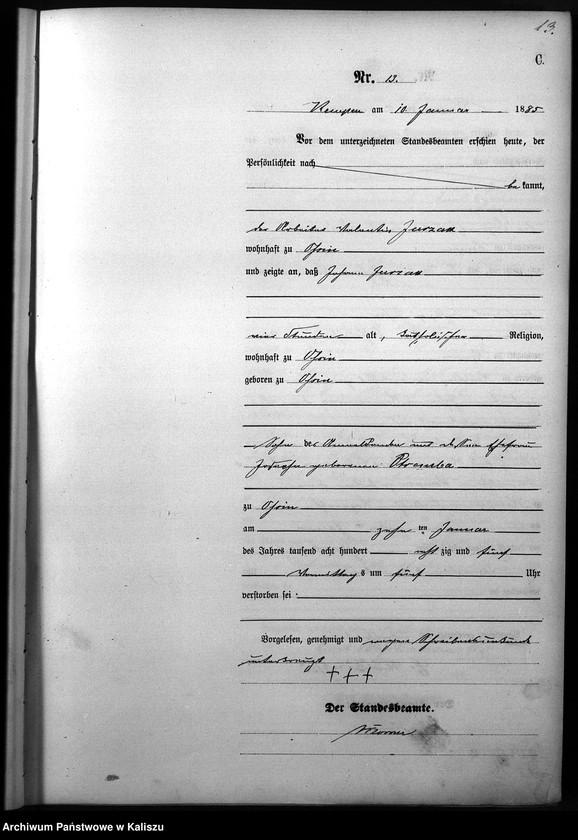 13.
C.
Nr. 13.
Kempen am 10. Januar 1885
Vor dem unterzeichneten Standesbeamten erschien heute, der
Persönlichkeit nach
bekannt,
der Arbeiter Valentin Jurzak
wohnhaft zu
und zeigte an, daß Johann Jurzak
vier Stunden alt, katholischer Religion,
wohnhaft zu
geboren zu
Sohn des Anmeldenden und dessen Ehefrau
geborenen
zu
am zehn ten Januar
des Jahres tausend acht hundert acht zig und fünf
Vormittags um fünf Uhr
verstorben sei
Vorgelesen, genehmigt und wegen Schreibensunkunde
unterkreuzt
+++
Der Standesbeamte.
Archiwum Państwowe w Kaliszu